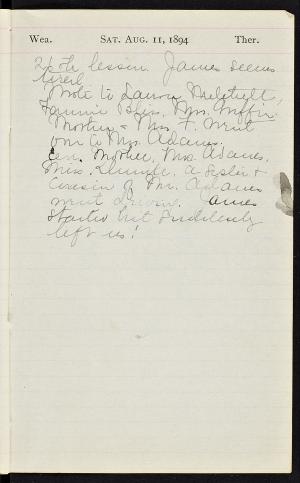 Wea. SAT. AUG. 11, 1894 Ther.
26th lesson. James seems
tired.
Wrote to Laura
Fannie Bliss, Mrs. Griffin.
Mother & Mrs F. went
to Mrs Adams.
Eve. Mother, Mrs. Adams,
Miss a sister &
cousin of Mr. Adams
went driving. James
started but suddenly
left us!